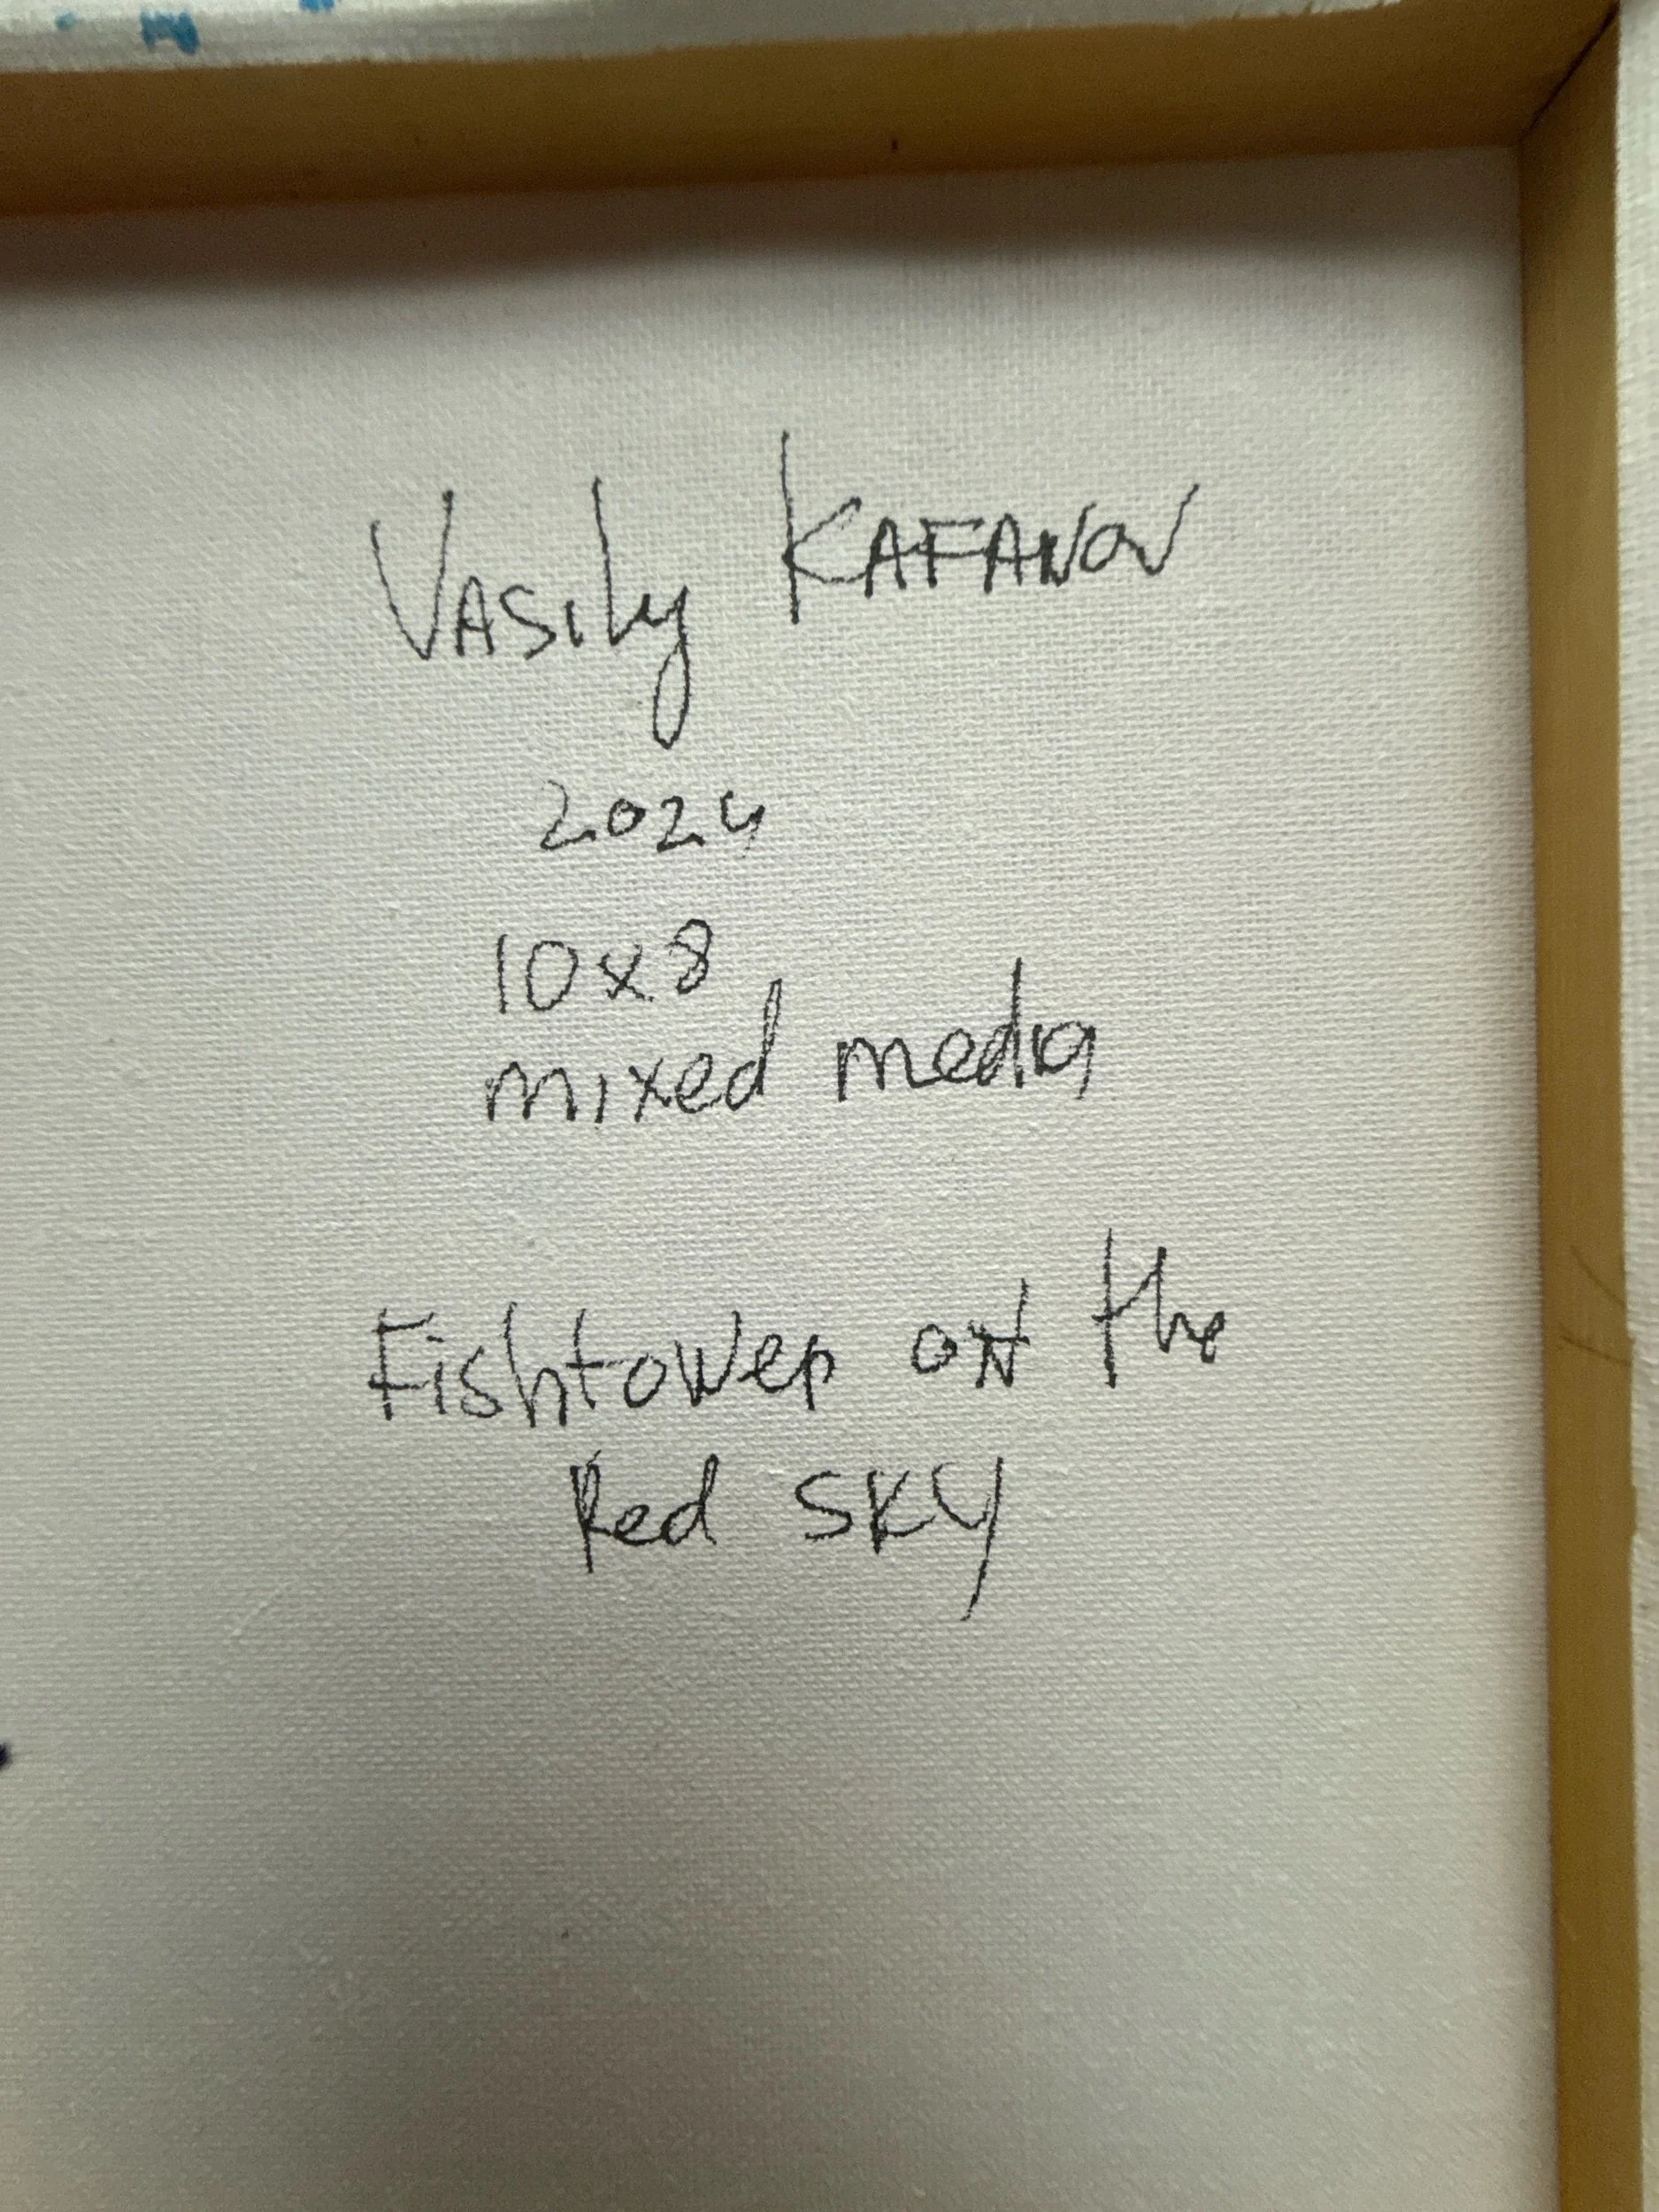 Vasily KAFANOV
2024
10x8
mixed media
Fishtower on the
Red SKY